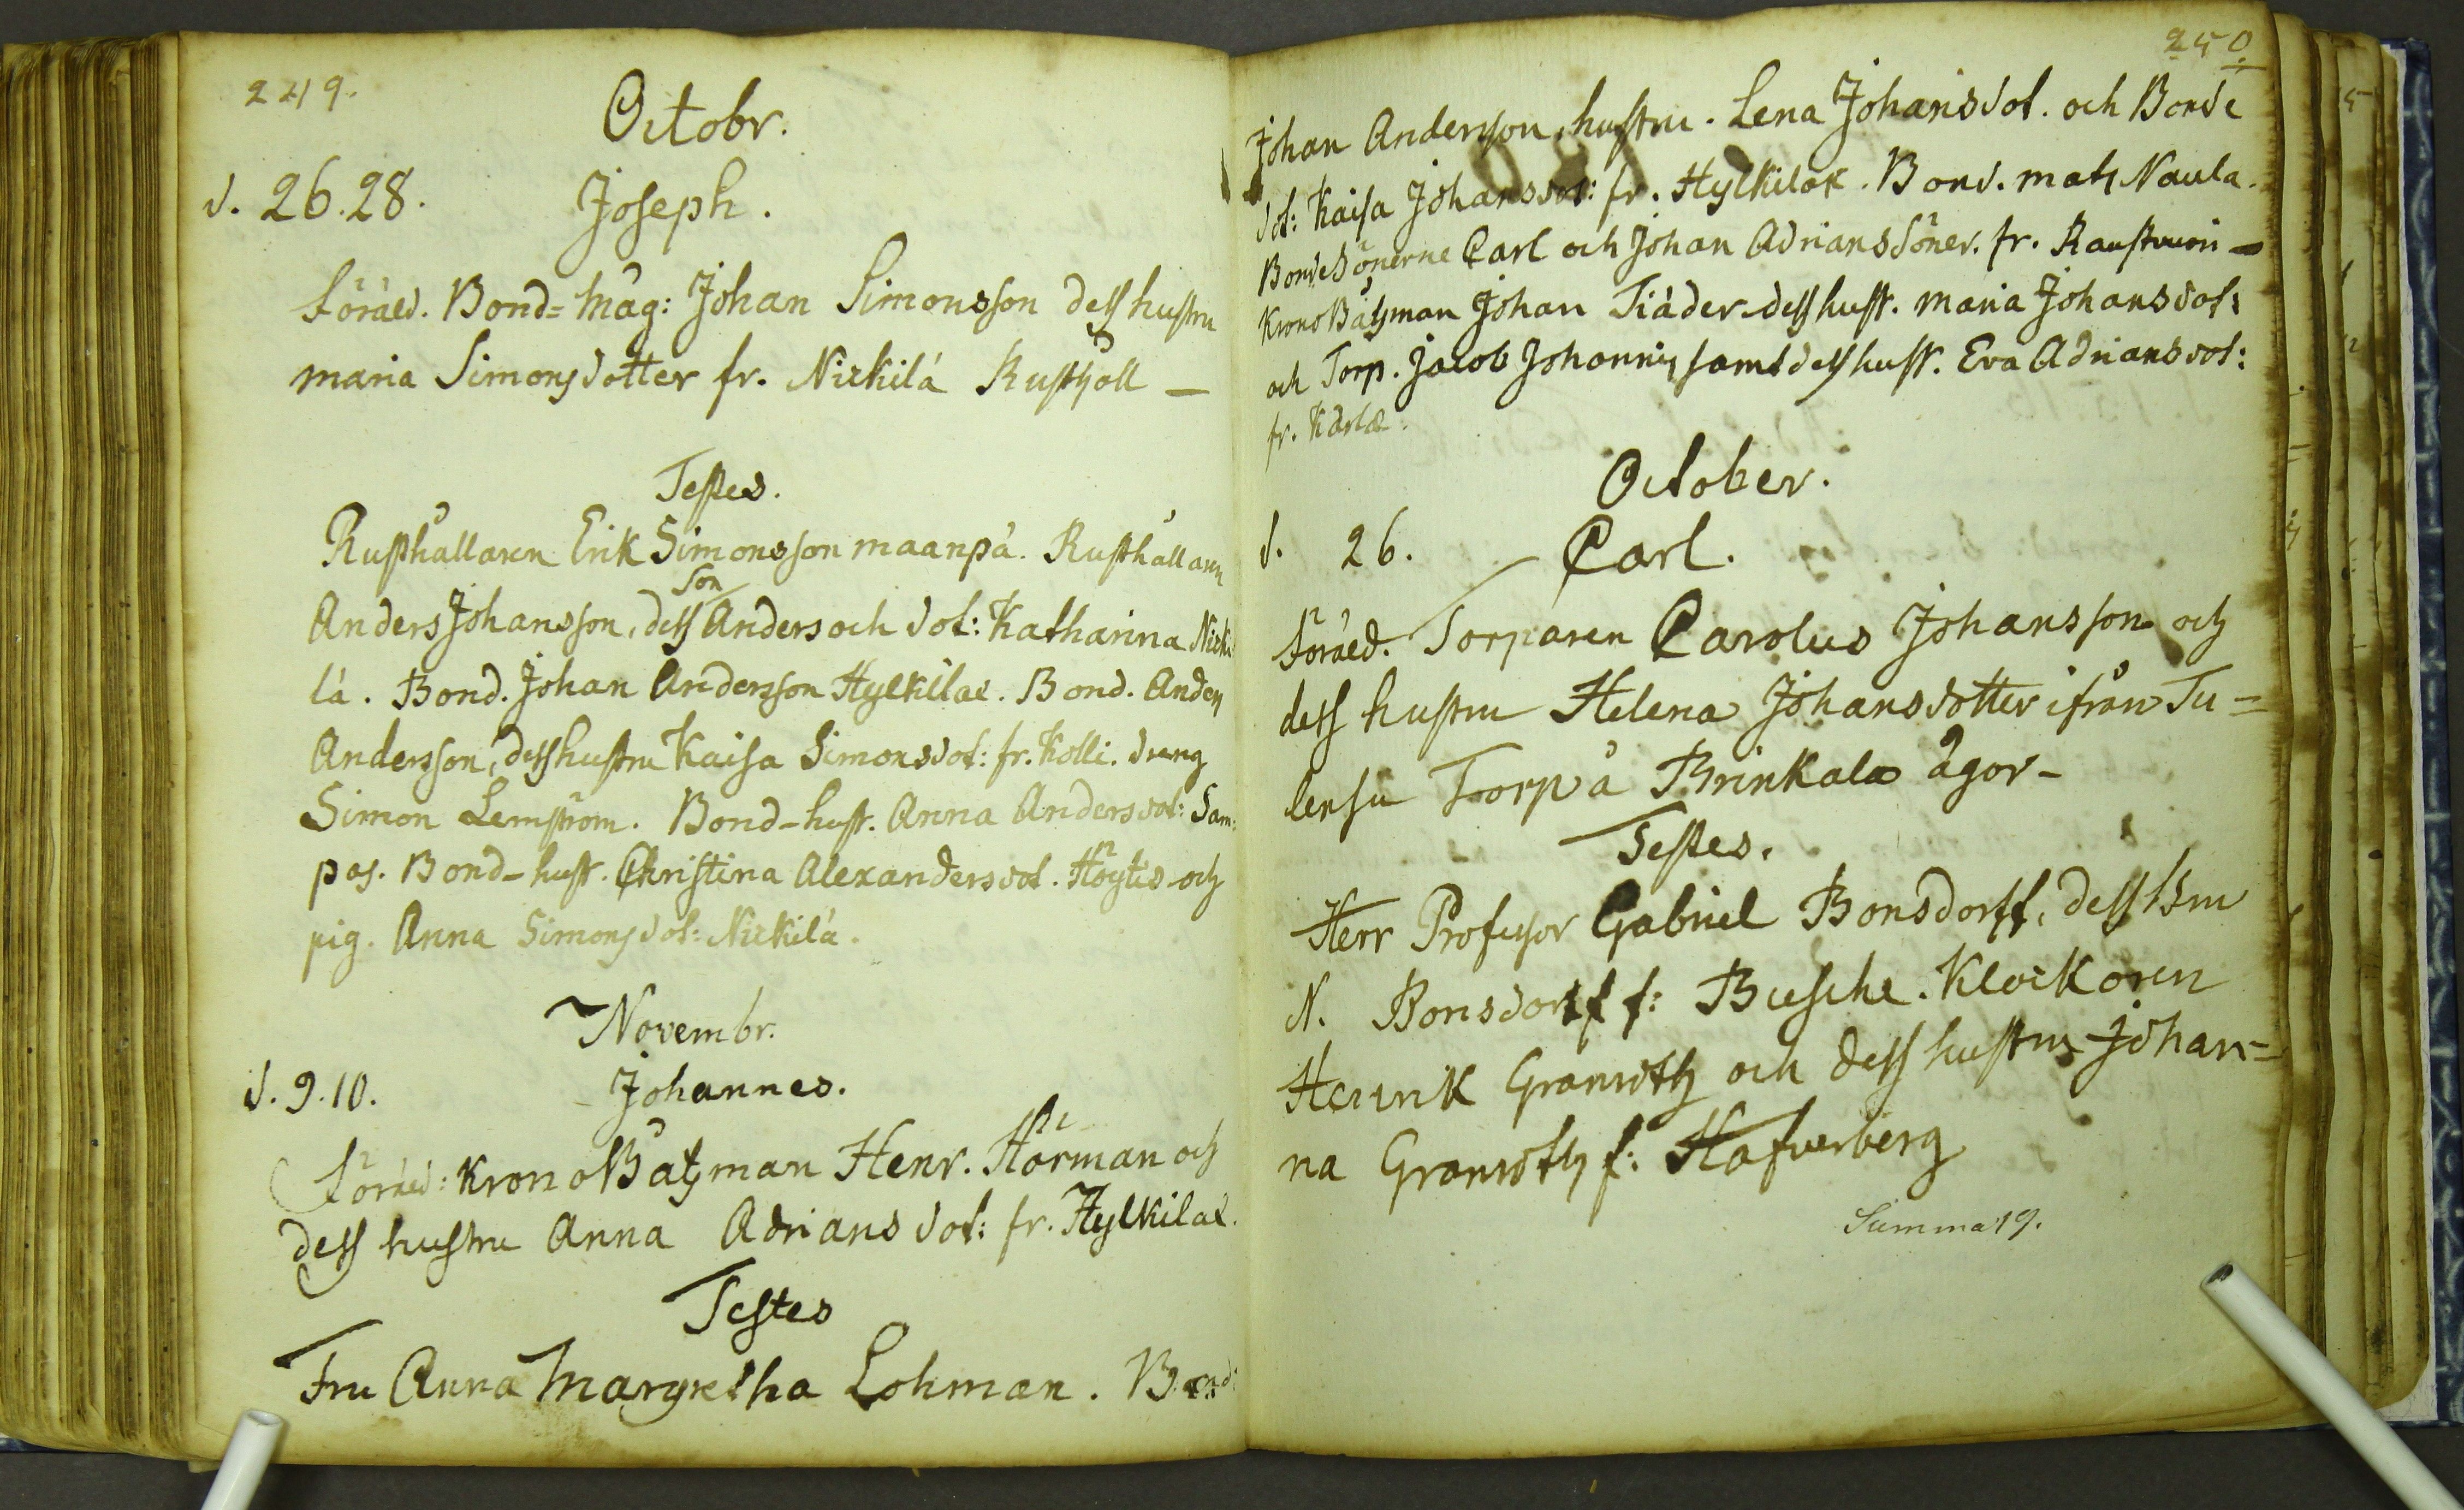 249.
Octobr.
d. 26. 28. Joseph.
Föräld. Bond-Måg: Johan Simonsson dess hustru
Maria Simonsdotter fr. Nickilä Rusthåll —
Testes.
Rusthållaren Erik Simonsson Maanpä. Rusthållaren
son
Anders Johansson, dess Anders och dot: Katharina Nicki
lä. Bond. Johan Andersson Hylkilae. Bond. Anders
Andersson, dess hustru Kaisa Simonsdot: fr. Kolli. dreng
Simon Lemström. Bond-hust. Anna Andersdot: Sam:
pas. Bond-hust. Christina Alexandersdot. Höytis och
pig. Anna Simonsdot: Nickilä.
Novembr.
d. 9. 10. Johannes.
Föräld: Krono Båtzman Henr. Hörman och
dess hustru Anna Adrians dot: fr. Hylkilae.
Testes
Fru Anna Margretha Lohman. Bond:
250.
Johan Andersson, hustru. Lena Johansdot. och Bonde
dot: Kaisa Johansdot: fr. Hylkilae. Bond. Mats Naula.
Bondesönerne Carl och Johan Adrianssöner. fr. Raustvuori —
Krono Båtzman Johan Tiäder dess hust. Maria Johansdot:
och Torp. Jacob Johannis, samt dess hust. Eva Adriansdot:
fr. Kärlae.
October.
d. 26. Carl.
Föräld. Torparen Carolus Johansson och
dess hustru Helena Johansdotter ifrån Tu=
lensu Torp å Brinkala ägor —
Testes.
Herr Professor Gabriel Bonsdorff, dess Fru
N. Bonsdorff f: Buesche. Klockoren
Henrik Granroth och dess hustru Johan=
na Granroth f: Hafverberg
Summa 19.